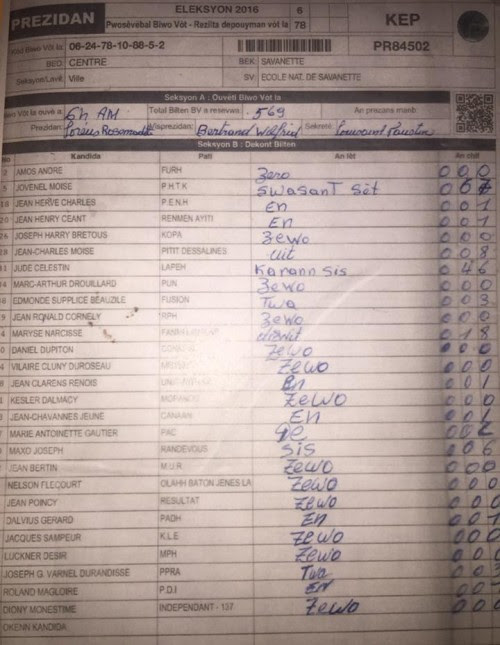 PREZIDAN ELEKSYON 2016 6 KEP
Pwosèvèbal Biwo Vòt - Rezilta depouyman vòt la 78
Biwo Vòt la: 06-24-78-10-88-5-2 PR84502
BED: CENTRE BEK: SAVANETTE
Seksyon/Lavil: Ville SV: ECOLE NAT. DE SAVANETTE
Seksyon A : Ouvèti Biwo Vòt la
Biwo Vòt la ouvè a: 6h AM Total Bilten BV a resevwa: 569 An prezans manb:
Prezidan: Visprezidan: Bertrand Wilfrid Sekretè:
Seksyon B : Dekont Bilten
Kandida Pati An lèt An chif
AMOS ANDRE FURH Zero 000
JOVENEL MOISE P.H.T.K SWASANT SÈT 067
JEAN HERVE CHARLES P.E.N.H En 001
JEAN HENRY CEANT RENMEN AYITI En 001
JOSEPH HARRY BRETOUS KOPA Zewo 000
JEAN-CHARLES MOISE PITIT DESSALINES uit 008
JUDE CELESTIN LAPEH Karann sis 046
MARC-ARTHUR DROUILLARD PUN Zewo 000
EDMONDE SUPPLICE BEAUZILE FUSION Twa 003
JEAN RONALD CORNELY RPH Zewo 000
MARYSE NARCISSE 18
DANIEL DUPITON Zewo 000
VILAIRE CLUNY DUROSEAU Zewo 000
JEAN CLARENS RENOIS En 001
KESLER DALMACY Zewo 000
JEAN-CHAVANNES JEUNE CANAAN En 001
MARIE ANTOINETTE GAUTIER PAC 002
MAXO JOSEPH RANDEVOUS SIS 006
JEAN BERTIN M.U.R Zewo 000
NELSON FLECOURT OLAHH BATON JENES LA Zewo 000
JEAN POINCY RESULTAT Zewo 000
DALVIUS GERARD PADH En 00
JACQUES SAMPEUR K.L.E Zewo 000
LUCKNER DESIR MPH Zewo 000
JOSEPH G. VARNEL DURANDISSE PPRA Twa 00
ROLAND MAGLOIRE P.D.I En 00
DIONY MONESTIME INDEPENDANT - 137 Zewo 000
OKENN KANDIDA